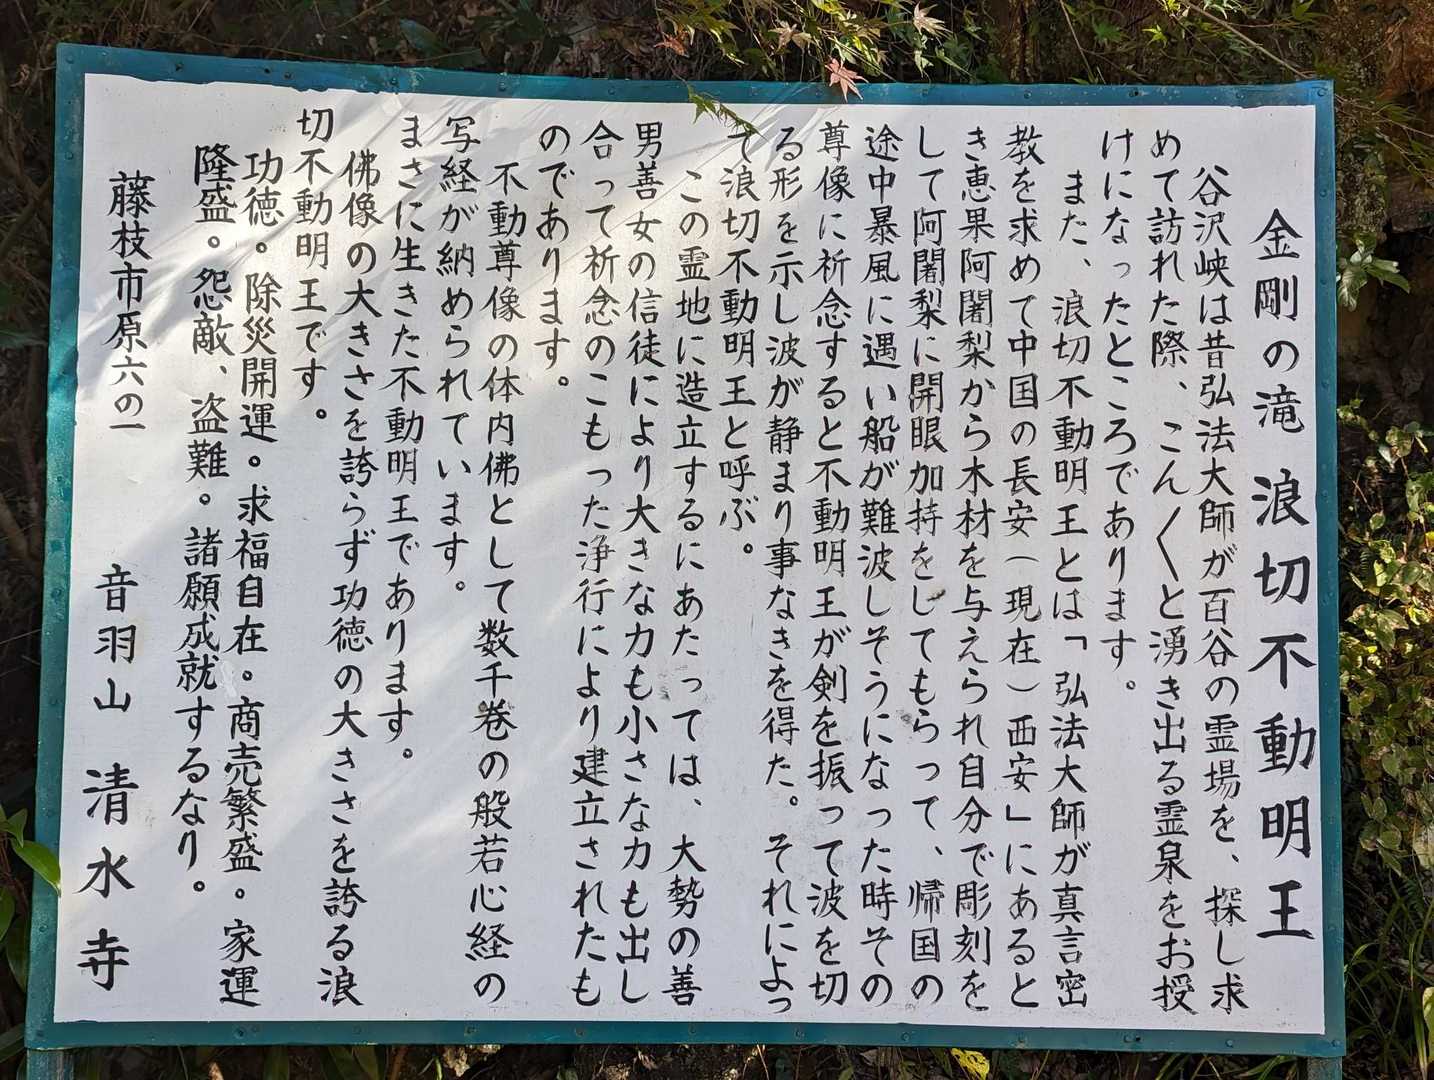 金剛の滝 浪切不動明王
谷沢峡は昔弘法大師が百谷の霊場を、探し求
めて訪れた際、こん〱と湧き出る霊泉をお授
けになったところであります。
また、浪切不動明王とは「弘法大師が真言密
教を求めて中国の長安(現在)西安」にあると
き恵果阿闍梨から木材を与えられ自分で彫刻を
して阿闍梨に開眼加持をしてもらって、帰国の
途中暴風に遇い船が難波しそうになった時その
尊像に祈念すると不動明王が剣を振って波を切
る形を示し波が静まり事なきを得た。それによっ
て浪切不動明王と呼ぶ。
この霊地に造立するにあたっては、大勢の善
男善女の信徒により大きな力も小さな力も出し
合って祈念のこもった浄行により建立されたも
のであります。
不動尊像の体内佛として数千巻の般若心経の
写経が納められています。
まさに生きた不動明王であります。
佛像の大きさを誇らず功徳の大きさを誇る浪
切不動明王です。
功徳。除災開運。求福自在。商売繁盛。家運
隆盛。怨敵、盗難。諸願成就するなり。
藤枝市原六の一 音羽山 清水寺